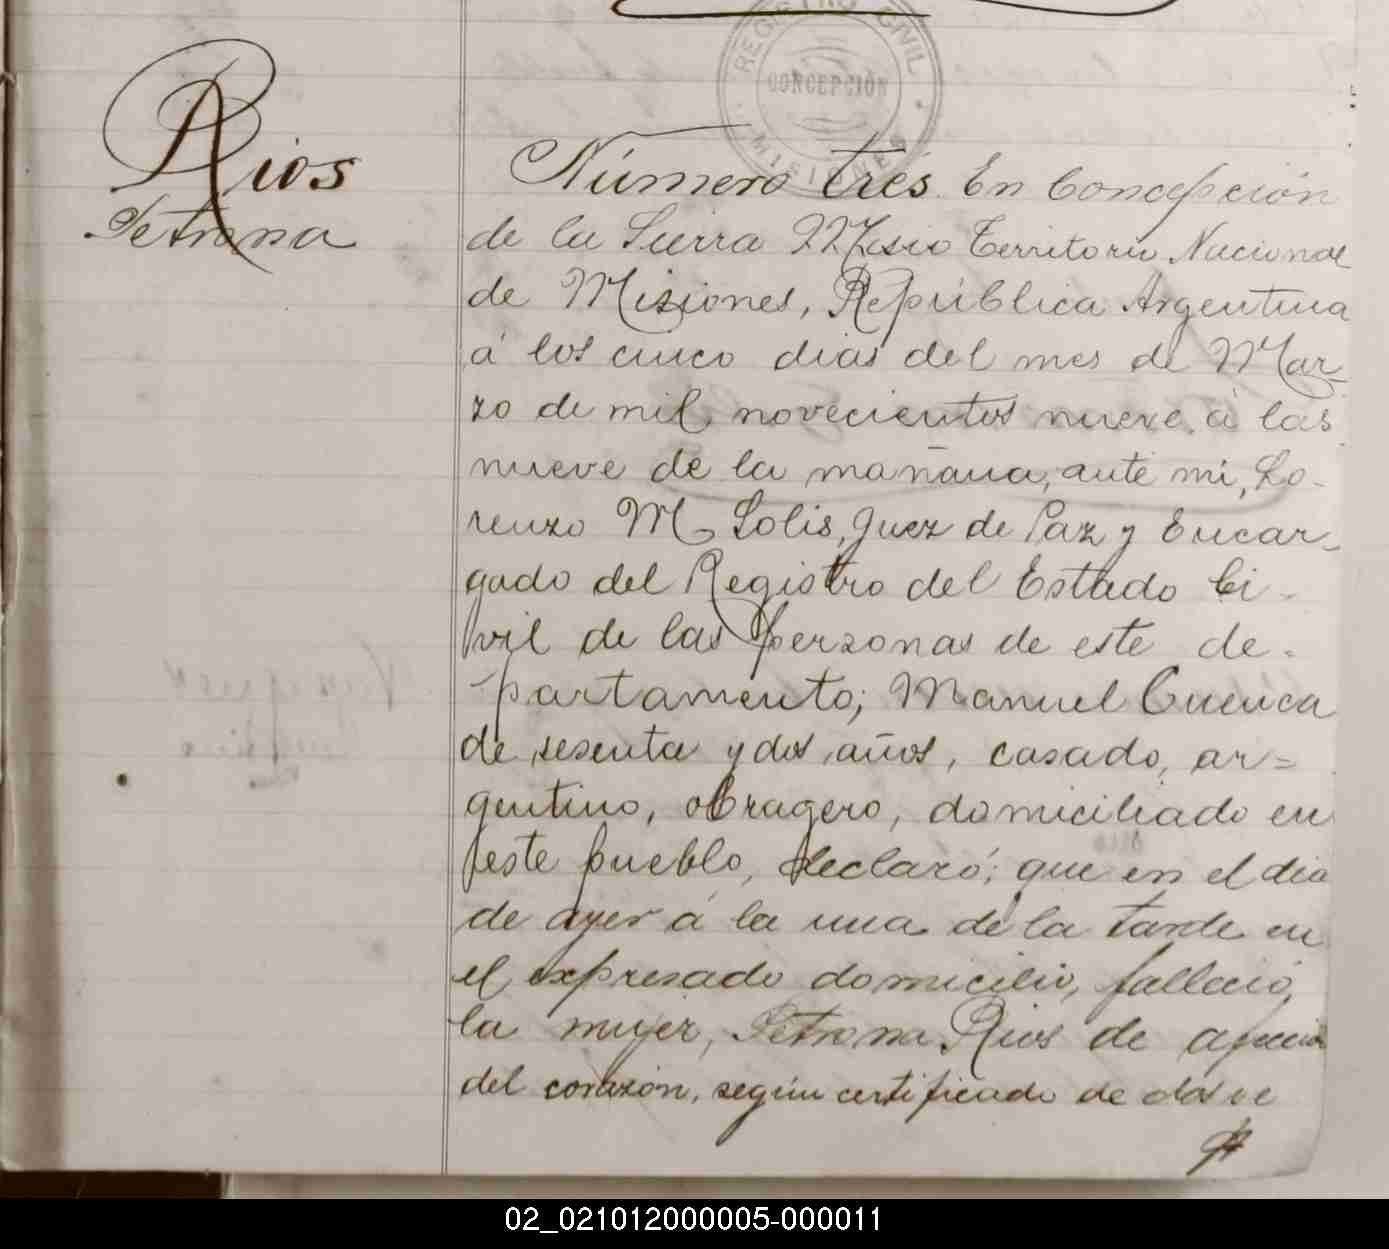 REGISTRO CIVIL
CONCEPCIÓN
MISIONES
Rios
Petrona
Número tres. En Concepción
de la Sierra Territorio Nacional
de Misiones, República Argentina
á los cinco dias del mes de Mar-
zo de mil novecientos nueve, á las
nueve de la mañana, ante mi, Lo-
renzo M. Solis, Juez de Paz y Encar-
gado del Registro del Estado Ci-
vil de las personas de este de-
partamento; Manuel Cuenca
de sesenta y dos años, casado, ar=
gentino, obragero, domiciliado en
este pueblo, declaró; que en el dia
de ayer á la una de la tarde en
el expresado domicilio, falleció,
la mujer, Petrona Rios de
del corazón, según certificado de dos ve
02_021012000005-000011